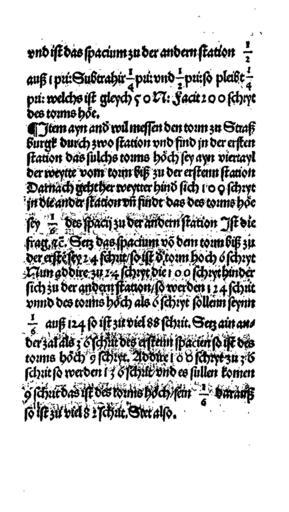 vnd ist das spacium zu der andern station 1/2
auß 1 pri: Subtrahir 1/4 pri: vnd 1/2 pri: so pleibt 1/4
pri: welchs ist gleych 50 N: Facit 200 schryt
des torns höe.
¶ Item ayn and wil messen den torn zu Straß
burgk durch zwo station vnd find in der ersten
station das sulchs torns höch sey ayn viertayl
der weyte vom torn biß zu der ersten station
Darnach geht her weytter hind sich 100 schryt
in die ander station vñ findt das des torns höe
sey 1/6 des spacij zu der andern station Ist die
frag ꝛc. Setz das spacium võ dem torn biß zu
der erste sey 24 schrit/ so ist ď torn hoch 6 schryt
Nun addire zu 24 schryt die 100 schryt hinder
sich zu der andern station/ so werden 124 schrit
vnnd des torns höch als 6 schryt söllenn seynn
1/6 auß 124 so ist zit viel 88 schrit. Setz ain an-
der zal als 36 schrit des ersteñ spacien so ist des
torns höch 9 schryt. Addire 100 schryt zu 36
schrit so werden 136 schrit vnd es süllen komen
9 schryt das ist des torns höch/ sein 1/6 darauß
so ist zu viel 82 schrit. Stet also.